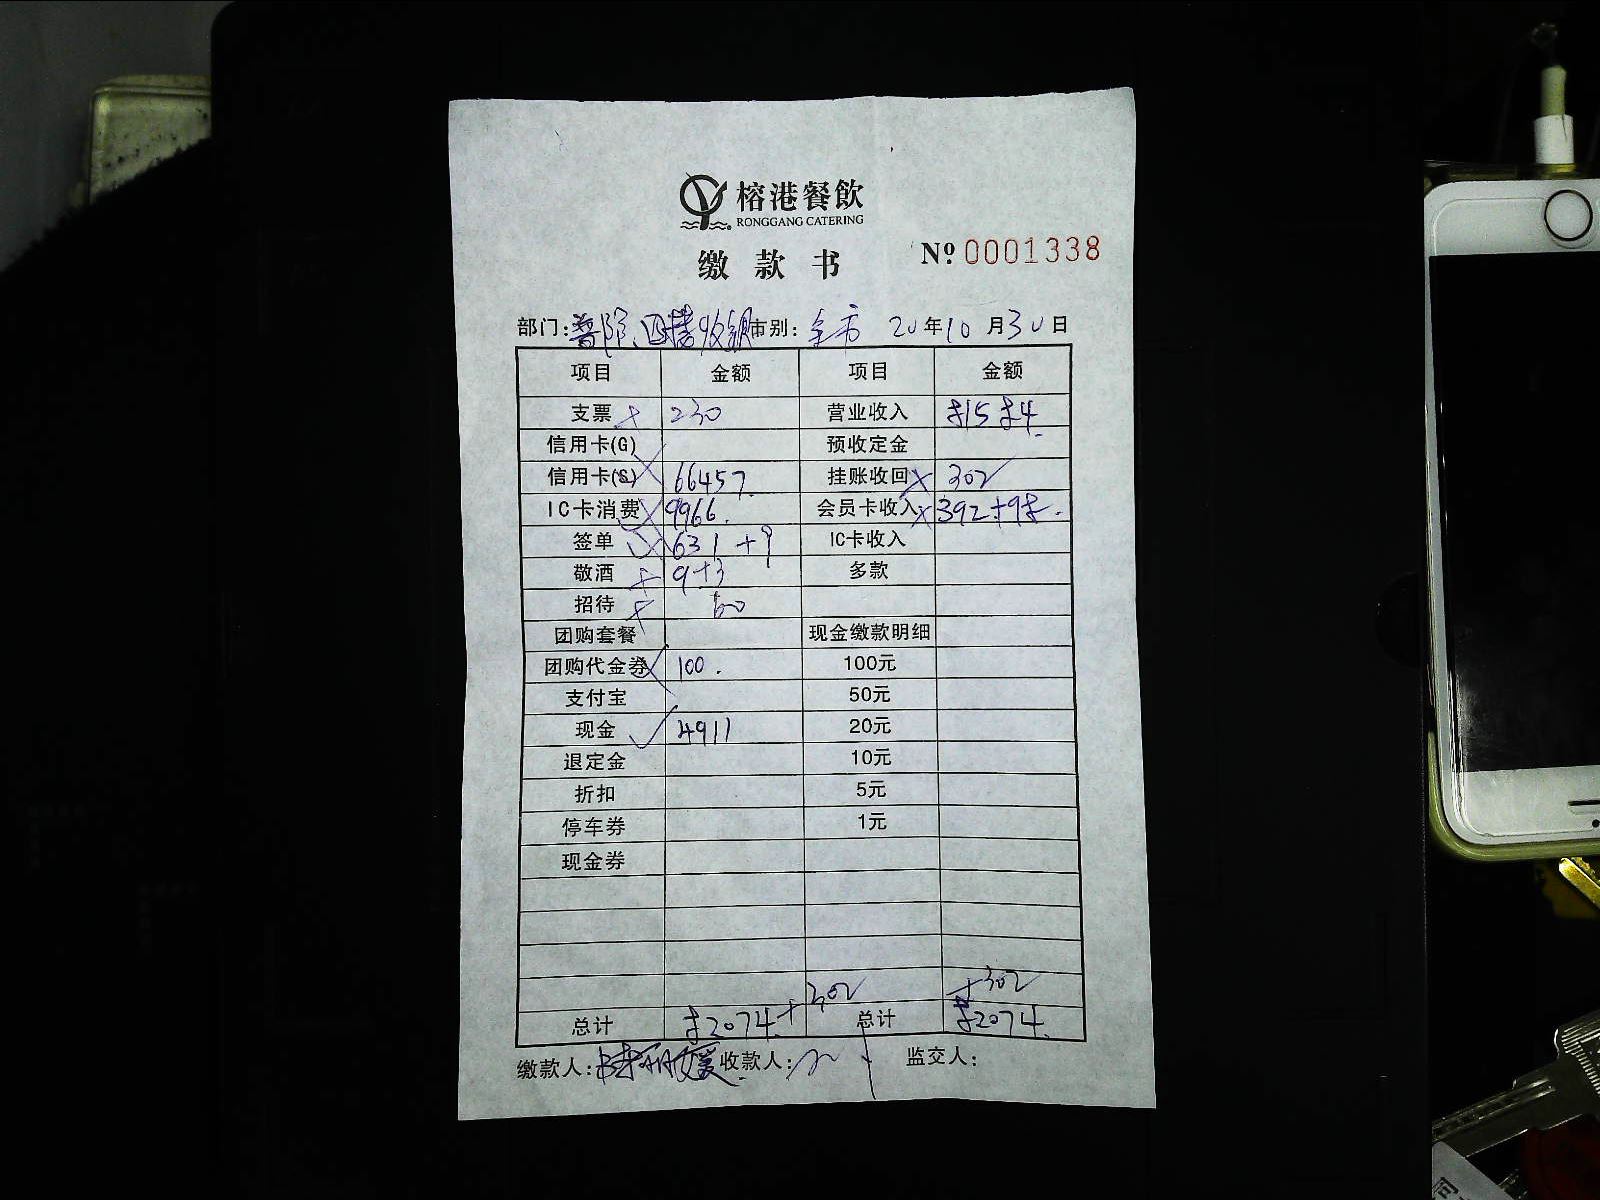 榕港餐飲
RONGGANG CATERING
缴款书
Nº 0001338
部门: 市别: 全市 20年10月30日
项目 金额 项目 金额
支票 230 营业收入
信用卡(G) 预收定金
信用卡(S) 66457 挂账收回 302
IC卡消费 9966. 会员卡收入
签单 631+9 IC卡收入
敬酒 9+3 多款
招待 60
团购套餐 现金缴款明细
团购代金券 100. 100元
支付宝 50元
现金 4911 20元
退定金 10元
折扣 5元
停车券 1元
现金券
+302 +302
总计 总计
缴款人: 收款人: 监交人: